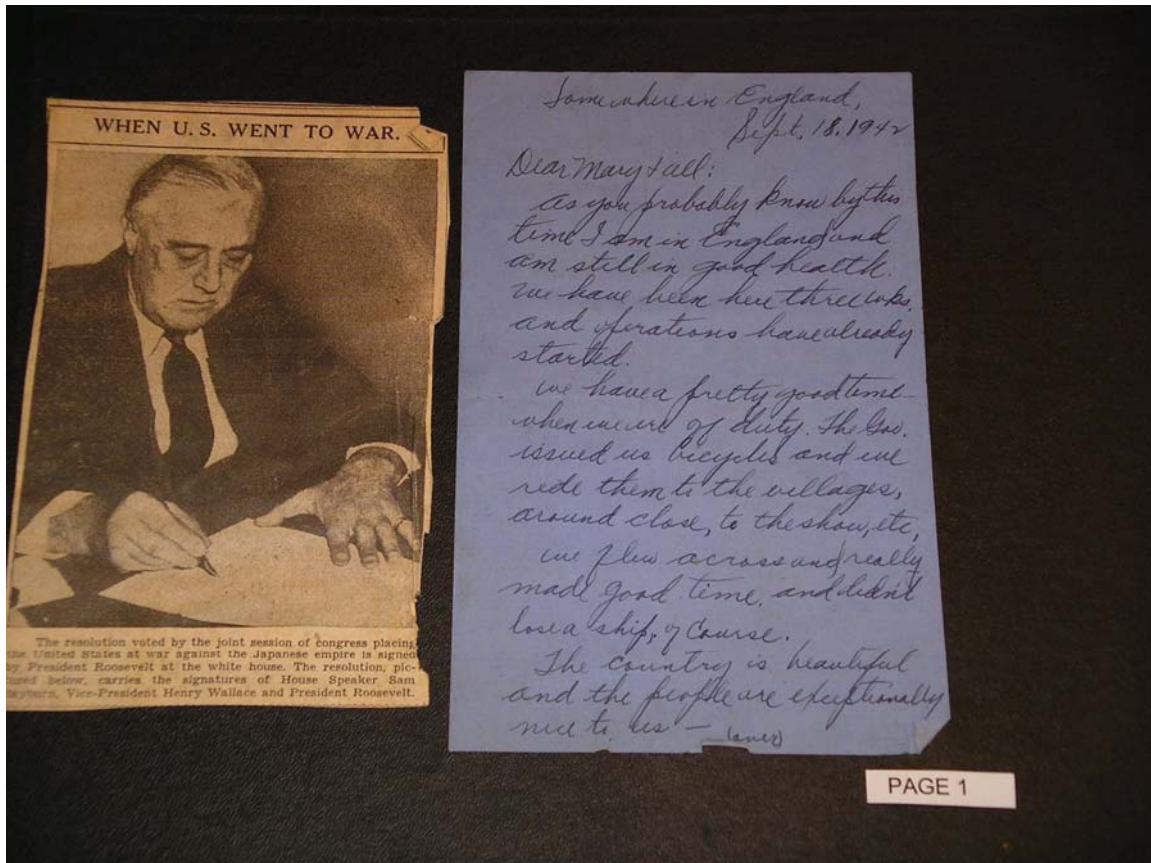 WHEN U. S. WENT TO WAR.
The resolution voted by the joint session of congress placing
the United States at war against the Japanese empire is signed
by President Roosevelt at the white house. The resolution, pic-
tured below, carries the signatures of House Speaker Sam
Rayburn, Vice-President Henry Wallace and President Roosevelt.
Somewhere in England,
Sept. 18. 1942
Dear Mary & all:
As you probably know by this
time I am in England and
am still in good health.
We have been here three wks.
and operations have already
started.
We have a pretty good time
when we are off duty. The Gov.
issued us bicycles and we
rede them to the villages,
around close, to the show, etc,
We flew across and really
made good time, and didn't
lose a ship, of course.
The country is beautiful
and the people are exceptionally
nice to us — (over)
PAGE 1